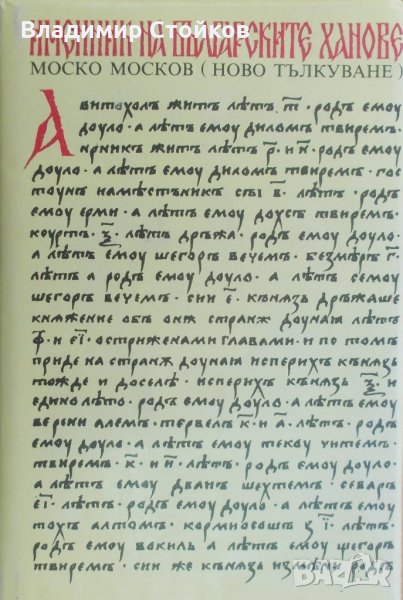 Владимир Стойков
ИМЕННИК НА БЪЛГАРСКИТЕ ХАНОВЕ
МОСКО МОСКОВ ( НОВО ТЪЛКУВАНЕ )
Авитохолъ житъ лѣтъ т҃ · родъ емоу
доуло · а лѣтъ емоу диломъ твиремъ ·
ирникъ житъ лѣтъ р҃ · и н҃ · родъ емоу
доуло · а лѣтъ емоу диломъ твиремъ · гос
тоунъ намѣстьникъ сы в҃ · лѣтъ · родъ
емоу ерми · а лѣтъ емоу дохсъ твиремъ ·
коуртъ · ѯ҃ · лѣтъ дрьжа · родъ емоу доуло ·
а лѣтъ емоу шегоръ вечемъ · безмѣръ г҃ ·
лѣтъ а родъ емоу доуло · а лѣтъ семоу
шегоръ вечемъ · сии е҃ · кънязь дрьжаше
княжение обь онѫ странѫ доуная лѣтъ
ф҃ · и е҃і · остриженами главами · и по томъ
приде на странѫ доуная исперихъ кънязь
тожде и доселѣ · исперихъ кънязь ѯ҃ · и
едино лѣто · родъ емоу доуло · а лѣтъ емоу
верени алемъ · тервелъ к҃ · и а҃ · лѣтъ · родъ
емоу доуло · а лѣтъ емоу текоу читемъ ·
твиремъ · к҃ · и и҃ · лѣтъ · родъ емоу доуло ·
а лѣтъ емоу дванъ шехтемъ · севаръ
е҃і · лѣтъ · родъ емоу доуло · а лѣтъ емоу
тохъ алтомъ · кормисошъ з҃і · лѣтъ ·
родъ емоу вокиль а лѣтъ емоу шегоръ
твиремъ · сии же кънязь измѣни родъ
bazar